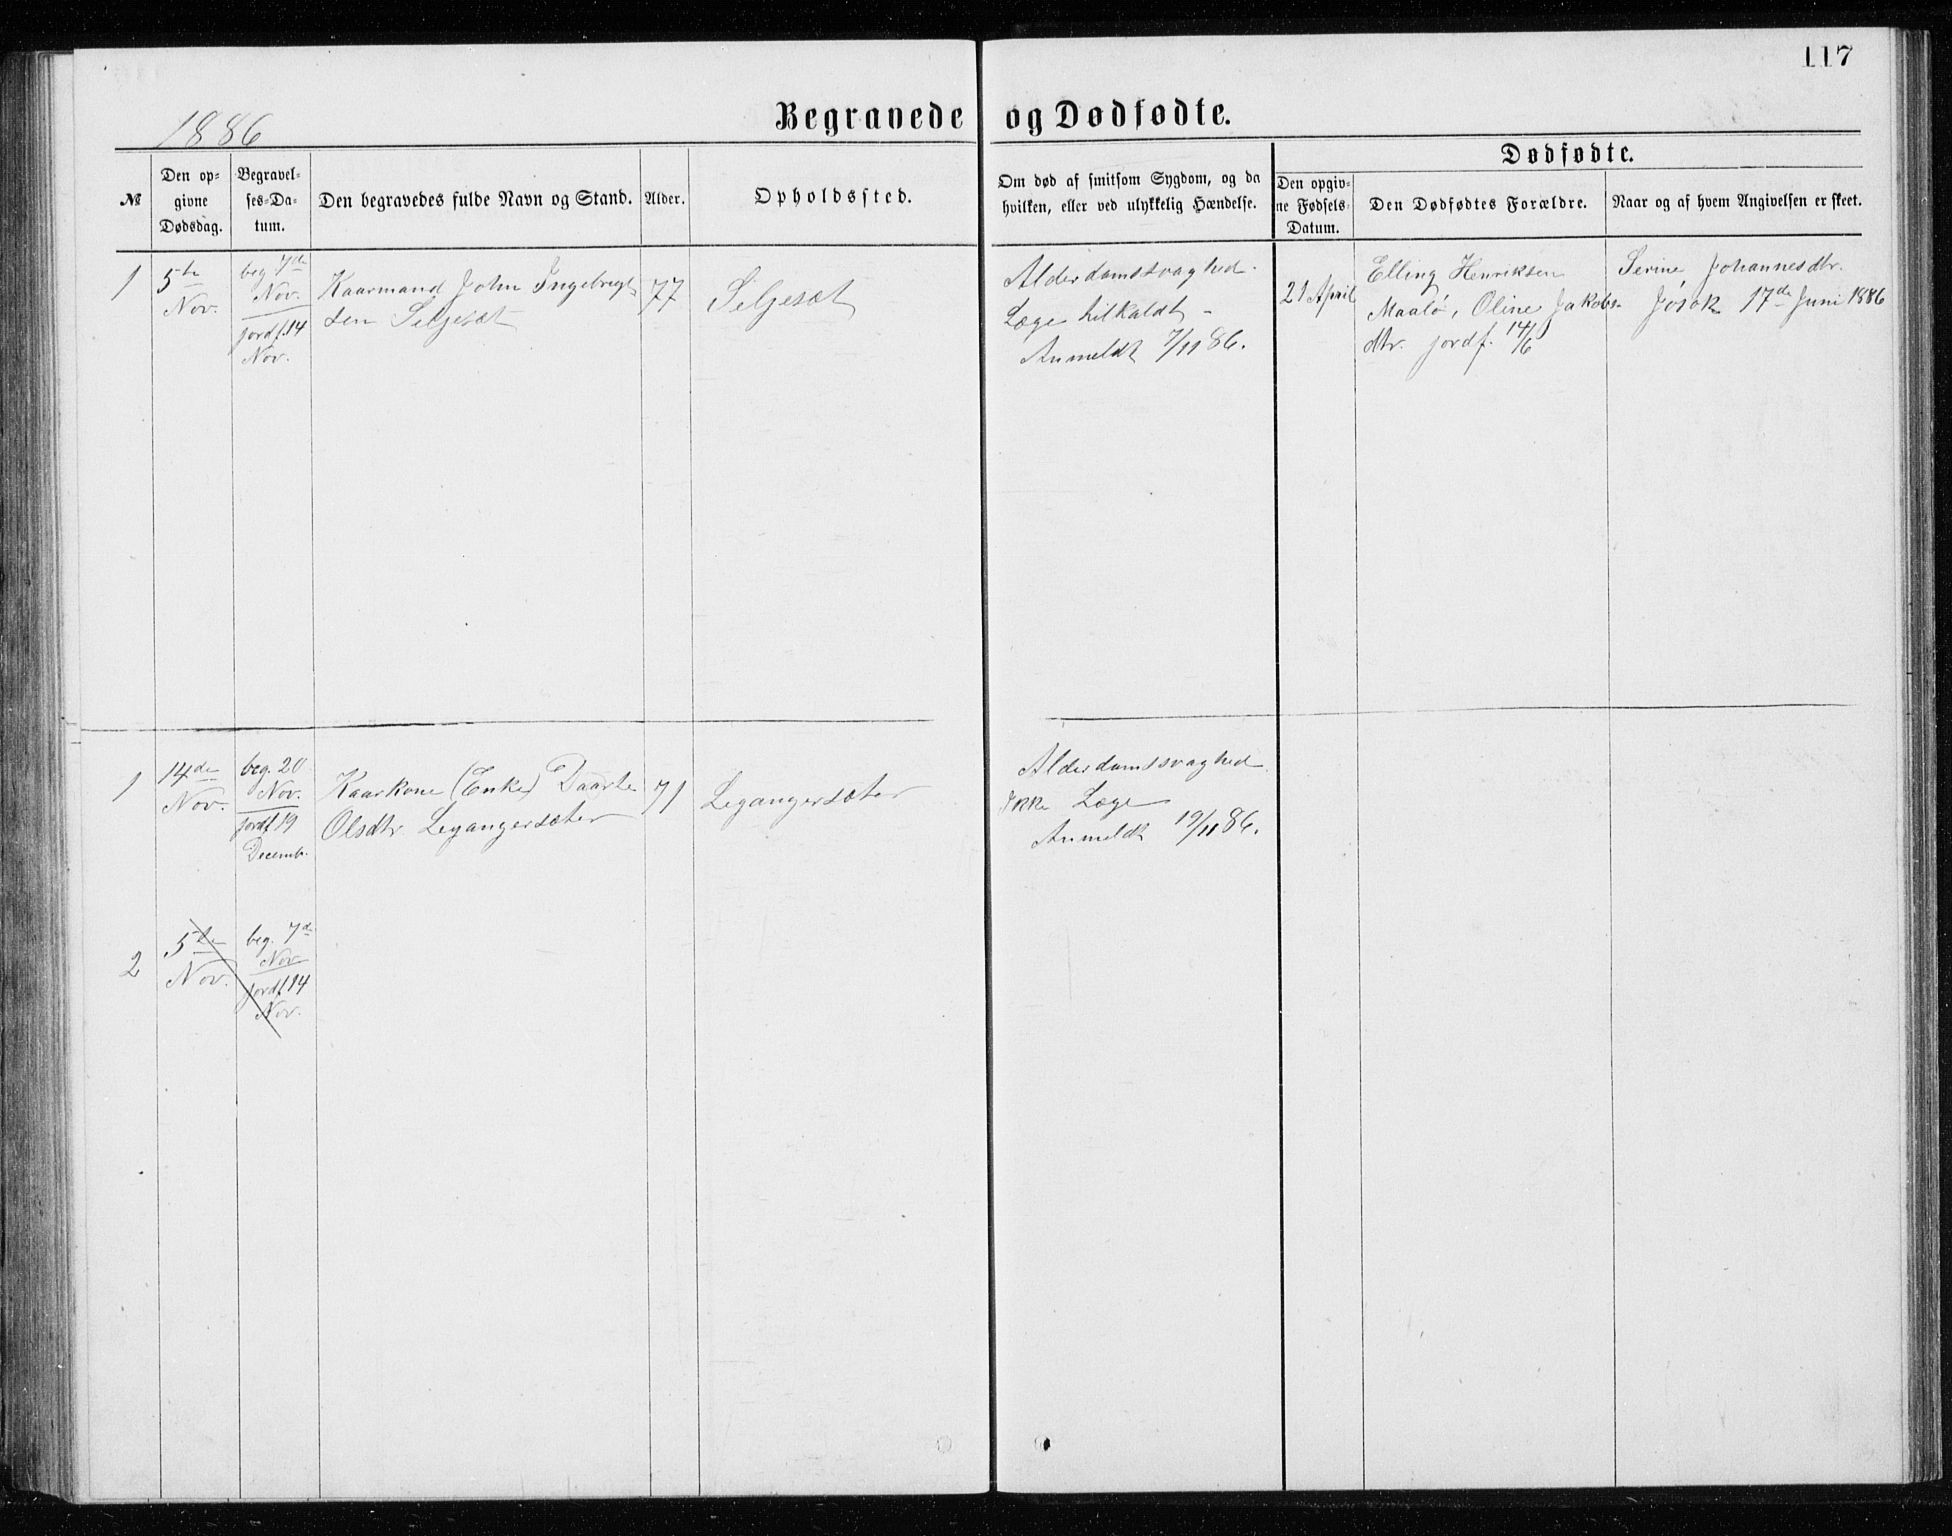 117
1886
Begravede og Dødfødte.
Dødfødte.
№
Den op-
givne
Dødsdag.
Begravel-
ses-Da-
tum.
Den begravedes fulde Navn og Stand.
Alder.
Opholdssted.
Om død af smitsom Sygdom, og da
hvilken, eller ved ulykkelig Hændelse.
Den opgiv-
ne Fødsels-
Datum.
Den Dødfødtes Forældre.
Naar og af hvem Angivelsen er skeet.
1
5te
Nov.
beg. 7de
Nov.
jordf. 14
Nov.
Kaarmand John Ingebrigt
sen Seljesæt
77
Seljesæt
Alderdomssvaghed.
Læge tilkaldt -
Anmeldt 7/11 86.
21 April
Elling Henriksen
Maalø, Oline Jakobs-
dtr. jordf. 14/6
Serine Johannesdtr.
Jøsok 17de Juni 1886
1
14de
Nov.
beg. 20
Nov.
jordf. 19
Decemb.
Kaarkone (Enke) Daarte
Olsdtr. Legangersæter
71
Legangersæter
Alderdomssvaghed.
Ikke Læge
Anmeldt 19/11 86.
2
5te
Nov.
beg. 7de
Nov.
jordf. 14
Nov.